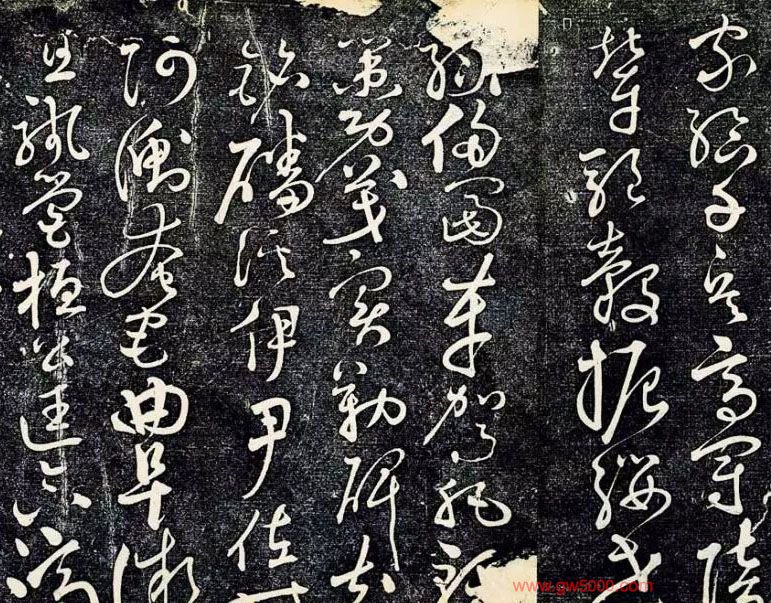 家給千兵高冠陪
輦驅轂振纓世
祿侈富車駕肥輕
策功茂實勒碑刻
銘磻溪伊尹佐
阿衡奄宅曲阜微
旦孰營桓公匡合濟
www.gw5000.com